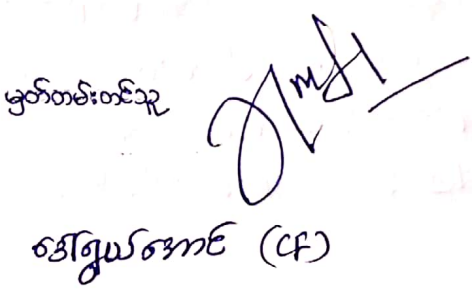 မှတ်တမ်းတင်သူ
ဒေါ်ရွယ်အောင် (CF)